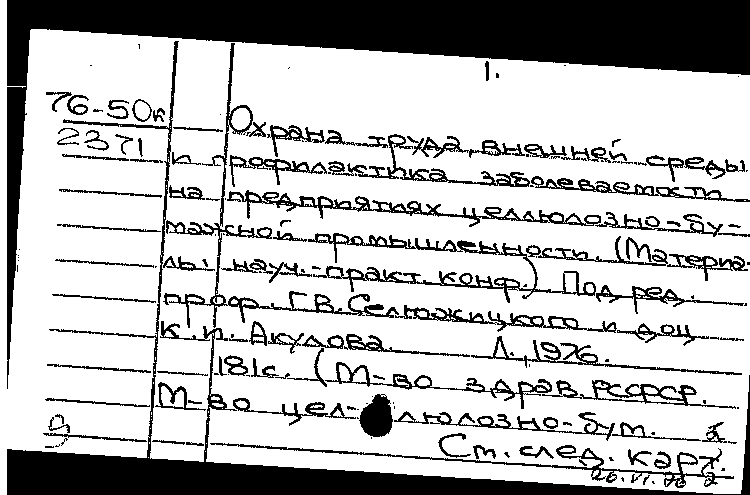 1.
76-50к
2371
Охрана труда, внешней среды
и профилактика заболеваемости
на предприятиях целлюлозно-бу-
мажной промышленности. (Материа-
лы науч.-практ. конф.) Под ред.
проф. Г.В. Селюжицкого и доц
К.И. Акулова. Л., 1976.
181с. (М-во здрав. РСФСР.
М-во цел- люлозно-бум.
9
См. след. карт.
26.VI.76